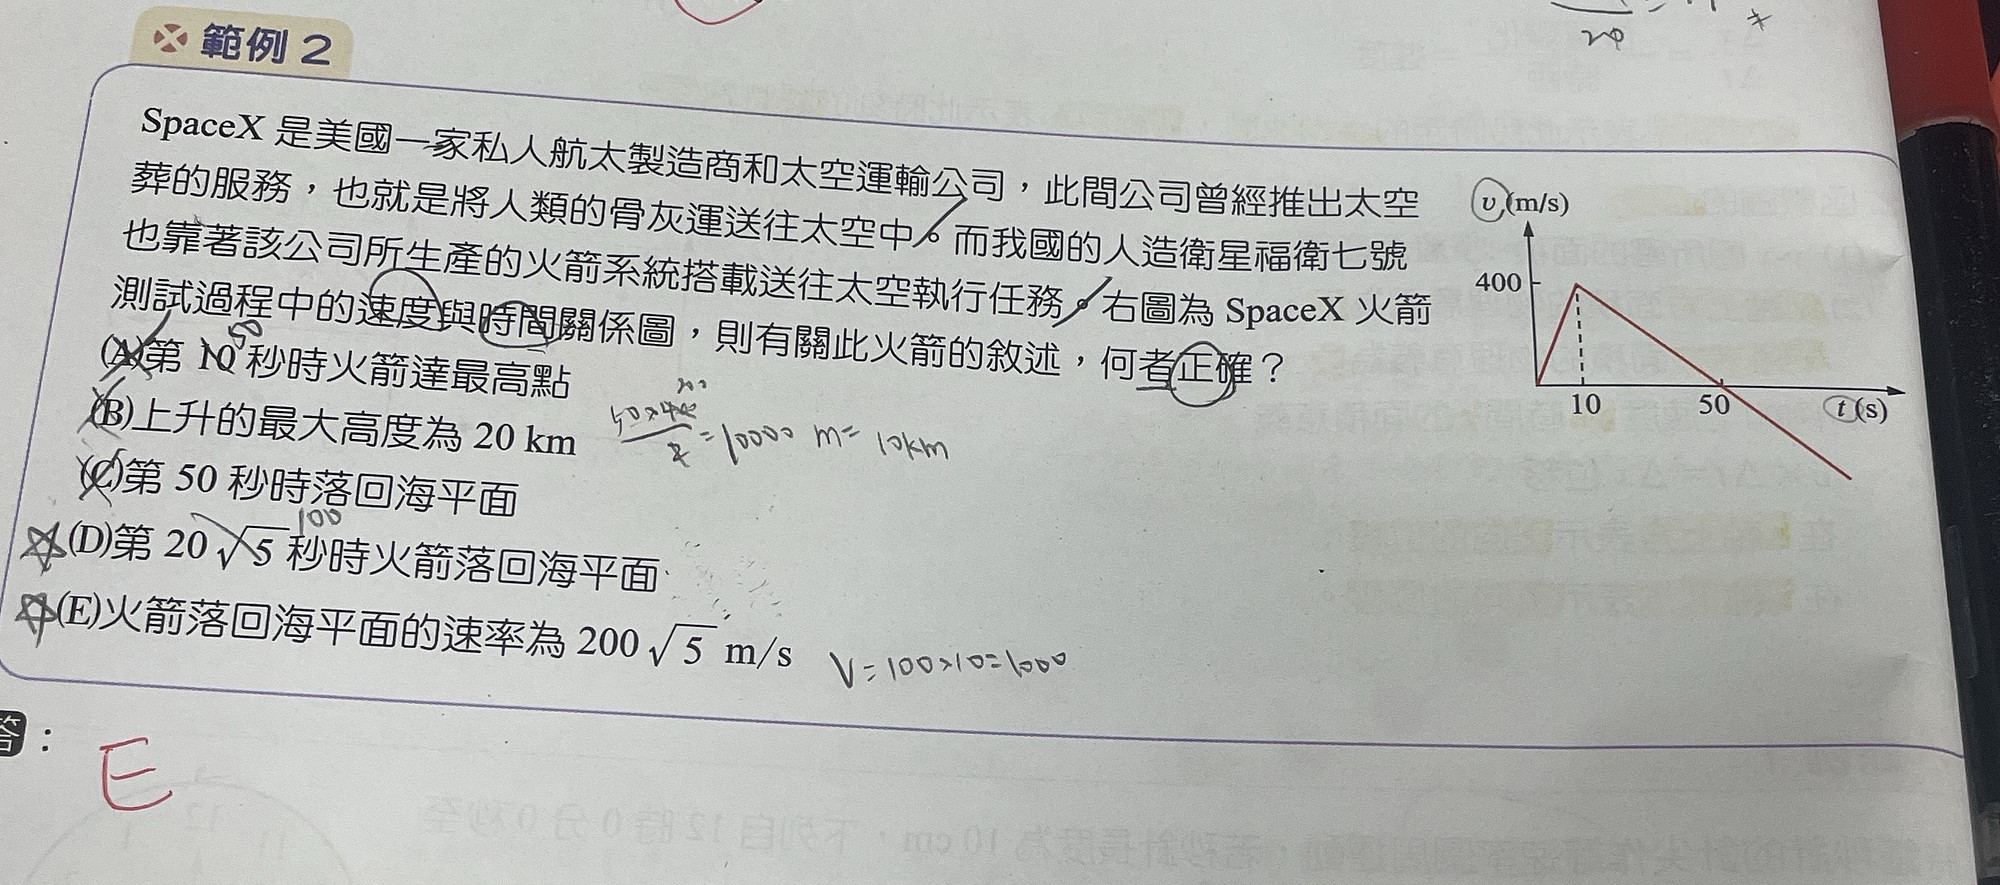 範例 2
SpaceX 是美國一家私人航太製造商和太空運輸公司，此間公司曾經推出太空
葬的服務，也就是將人類的骨灰運送往太空中。而我國的人造衛星福衛七號
也靠著該公司所生產的火箭系統搭載送往太空執行任務。右圖為 SpaceX 火箭
測試過程中的速度與時間關係圖，則有關此火箭的敘述，何者正確？
(A)第 10 秒時火箭達最高點
50
(B)上升的最大高度為 20 km
50×400/2=10000 m= 10km
200
(C)第 50 秒時落回海平面
(D)第 20√5 秒時火箭落回海平面
100
(E)火箭落回海平面的速率為 200√5 m/s
V=100×10=1000
v (m/s)
400
10
50
t (s)
答：
E